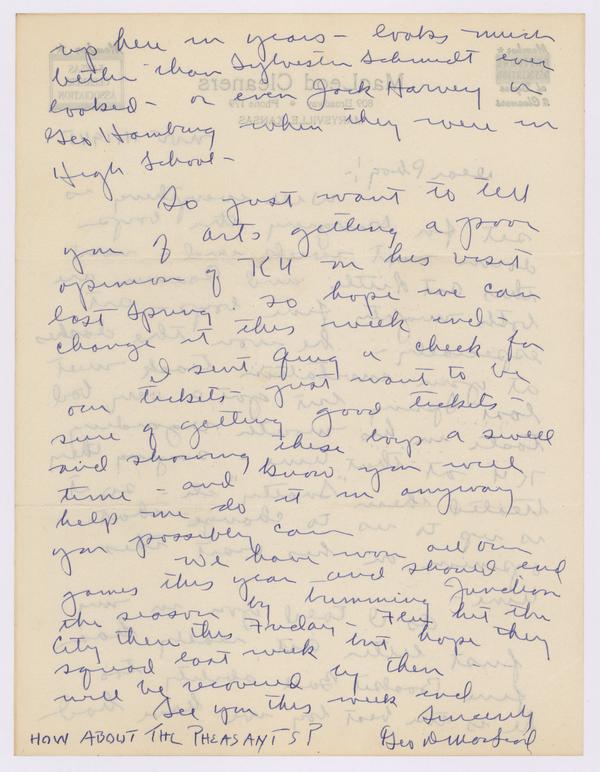 up here in years - looks much
better than Sylvester Schmidt ever
looked - or even Jack Harvey or
Geo Hamburg when they were in
High School -
So just want to tell
you of arts getting a poor
opinion of KU on his visit
last Spring. So hope we can
change it this week end
I sent Quig a check for
our tickets - just want to be
sure of getting good tickets -
and showing these boys a swell
time - and know you will
help me do it in anyway
you possibly can
We have won all our
games this year and should end
the season by trimming Junction
City there this Friday - Flu hit the
squad last week but hope they
will be recovered by then
See you this week end
Sincerely
Geo D MacLeod
HOW ABOUT THE PHEASANTS?